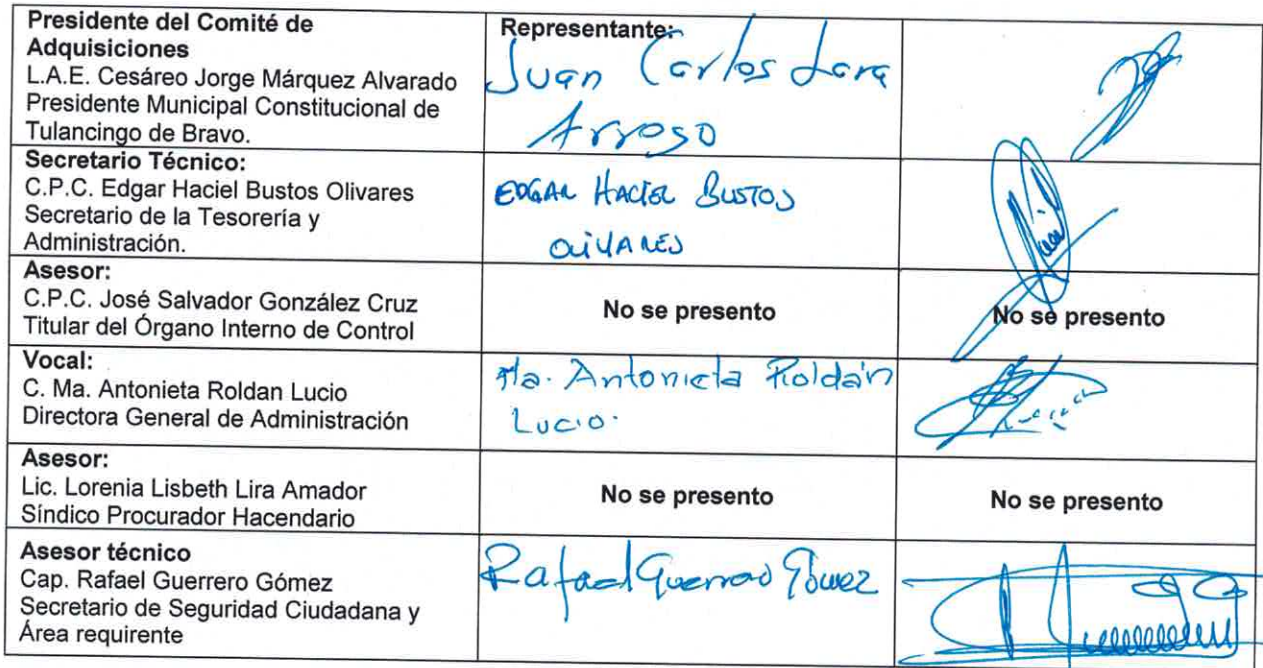 Presidente del Comité de
Adquisiciones
L.A.E. Cesáreo Jorge Márquez Alvarado
Presidente Municipal Constitucional de
Tulancingo de Bravo.
Representante:
Juan Carlos Lara
Arroso
Secretario Técnico:
C.P.C. Edgar Haciel Bustos Olivares
Secretario de la Tesorería y
Administración.
EDGAR HACIEL BUSTOS
OLIVARES
Asesor:
C.P.C. José Salvador González Cruz
Titular del Órgano Interno de Control
No se presento
No se presento
Vocal:
C. Ma. Antonieta Roldan Lucio
Directora General de Administración
Ma. Antonieta Roldán
Lucio.
Asesor:
Lic. Lorenia Lisbeth Lira Amador
Síndico Procurador Hacendario
No se presento
No se presento
Asesor técnico
Cap. Rafael Guerrero Gómez
Secretario de Seguridad Ciudadana y
Área requirente
Rafael Guerrero Gómez